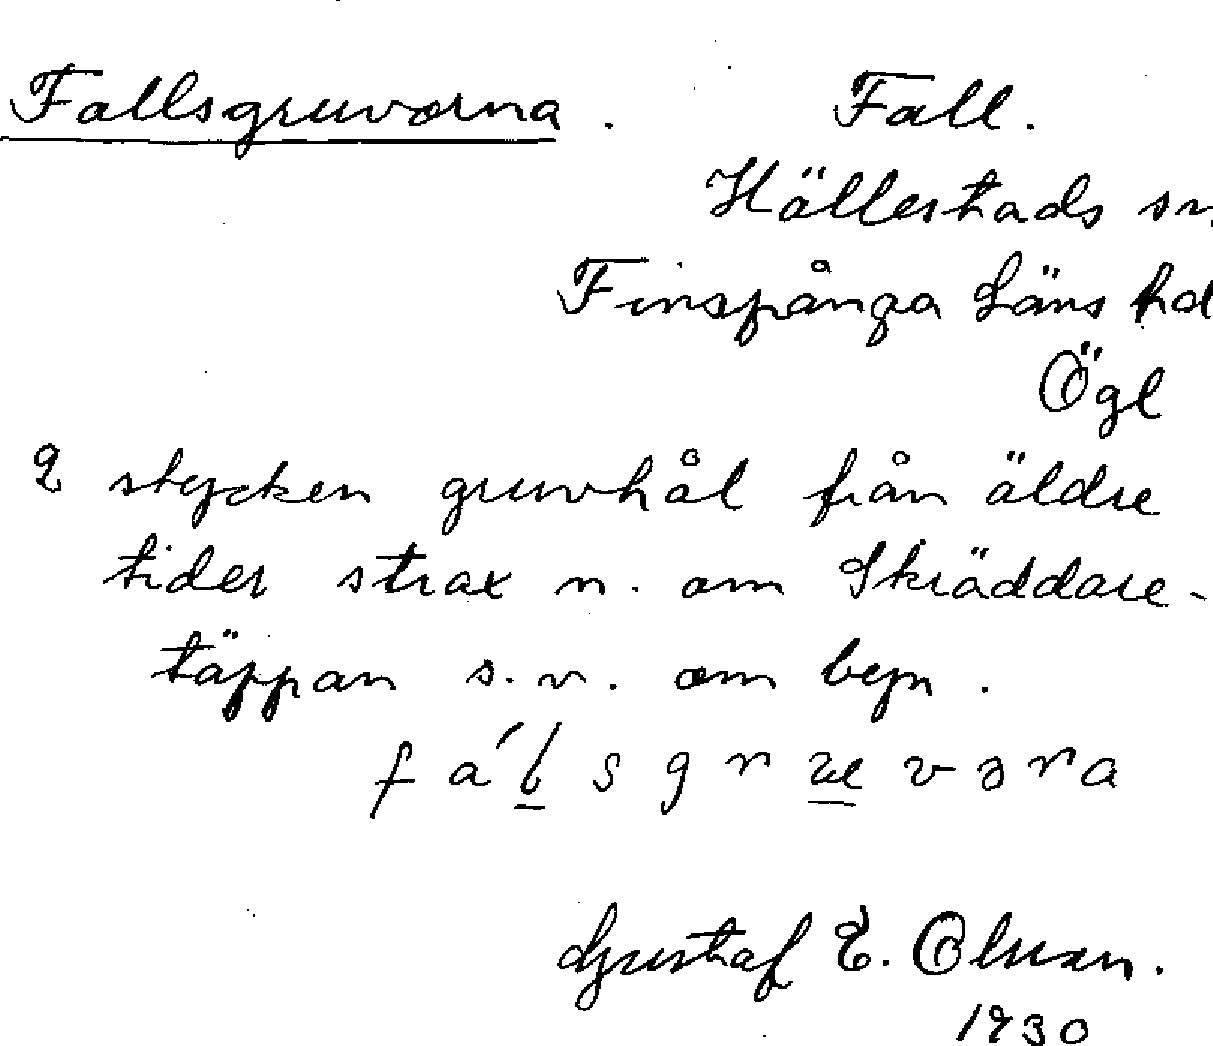 Fallsgruvorna. Fall.
Hällestads sn.
Finspånga Läns hd
Ögl
2 stycken gruvhål från äldre
tider strax n. om Skräddare-
täppan s.v. om byn.
Gustaf E. Olsson.
1930